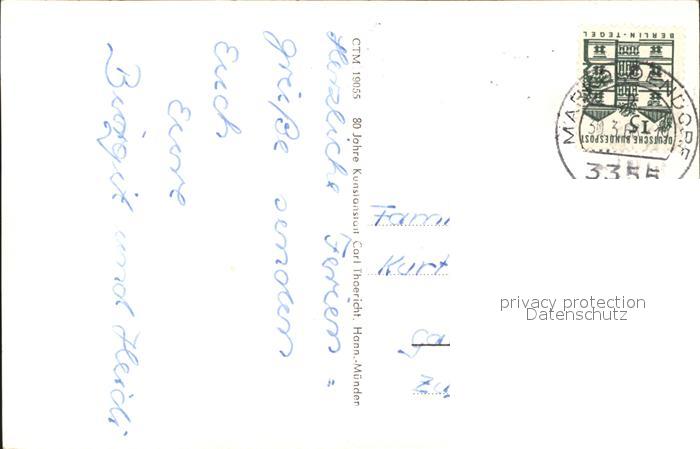 Herzliche Ferien=
grüße senden
Euch
Eure
Birgit und Heidi
CTM 19055 80 Jahre Kunstanstalt Carl Thoericht, Hann.-Münden
Fami
Kurt
Ga
Zu
BERLIN-TEGEL
15
DEUTSCHE BUNDESPOST
3355
privacy protection
Datenschutz